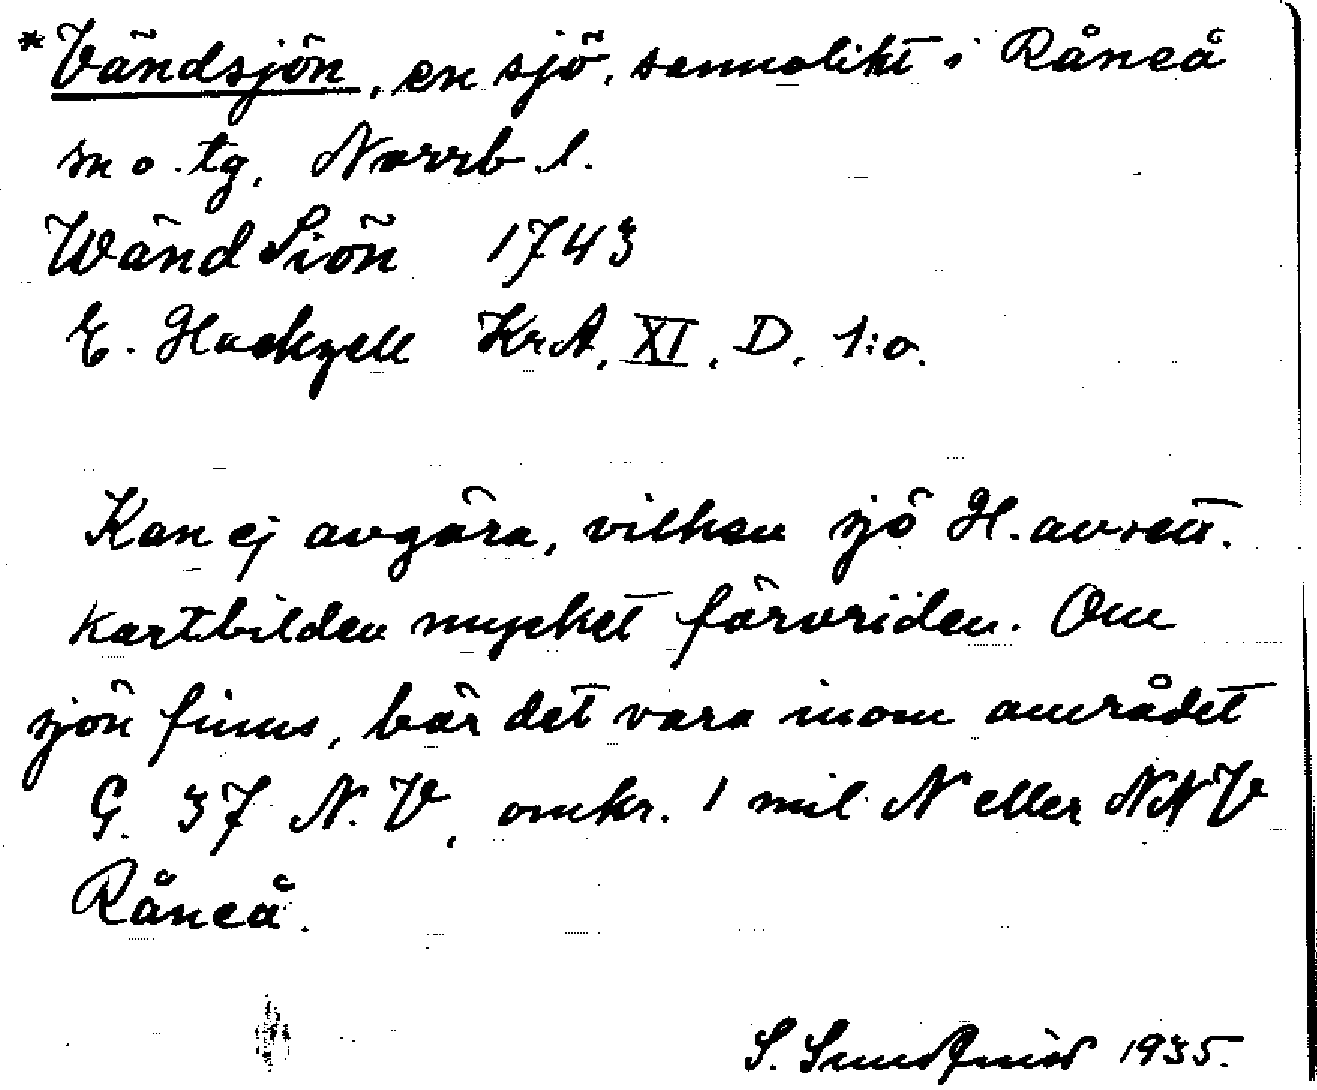 *Vändsjön, en sjö, sannolikt i Råneå
sn o. tg, Norrb. l.
Wänd Siön 1743
E. Hackzell KrA, XI, D, 1:a.
Kan ej avgöra, vilken sjö H. avsett.
Kartbilden mycket förvriden. Om
sjön finns, bör det vara inom området
G. 37 N.V, omkr. 1 mil N eller NNV
Råneå.
S. Sundqvist 1935.